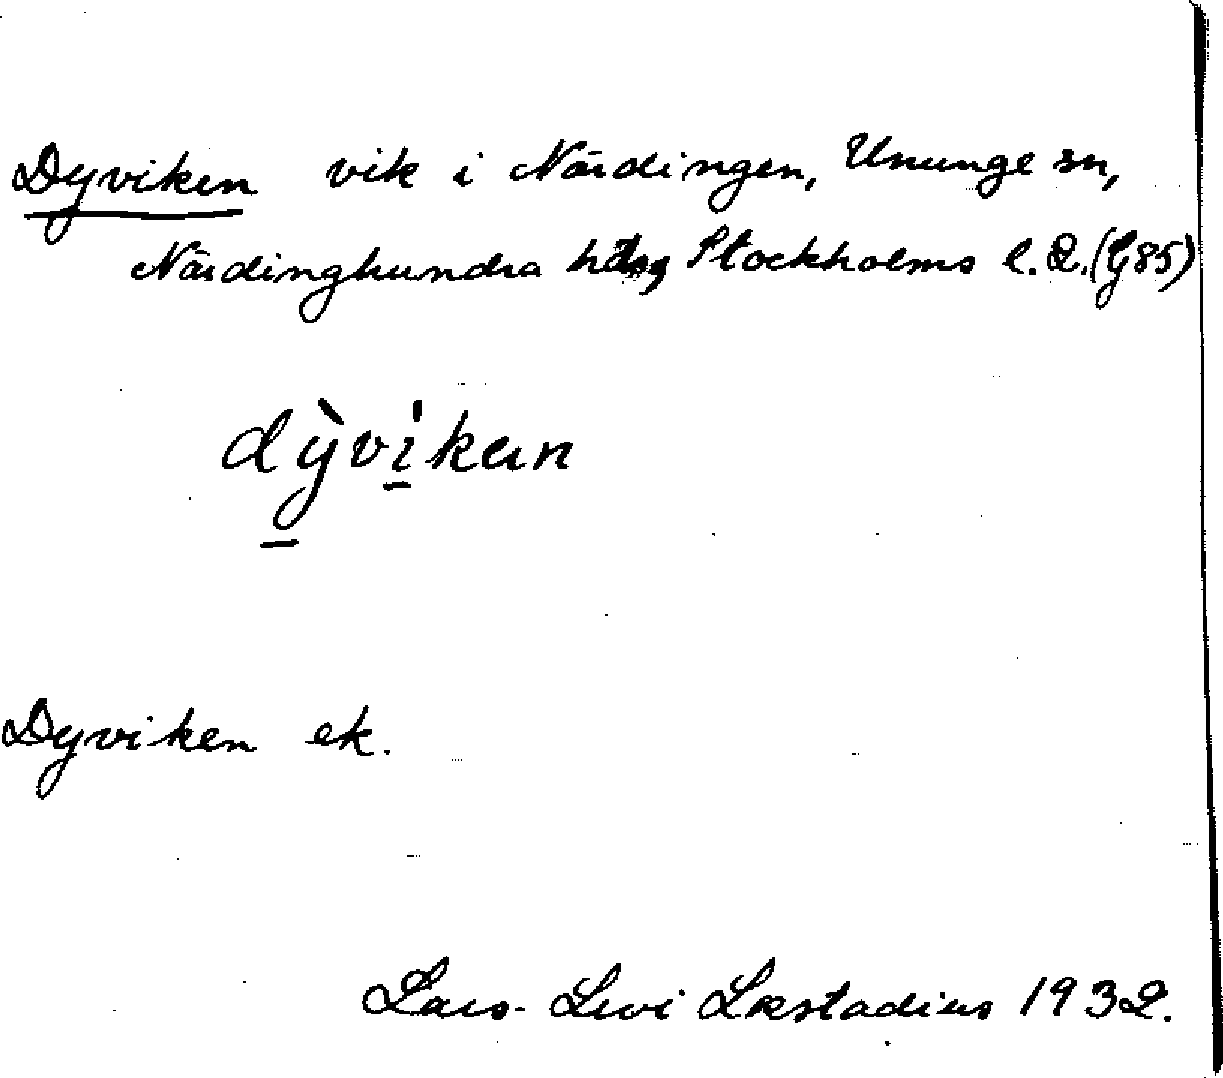 Dyviken vik i Närdingen, Ununge sn,
Närdinghundra hd, Stockholms l. 2. (G85)
dỳviken
Dyviken ek.
Lars-Levi Læstadius 1932.